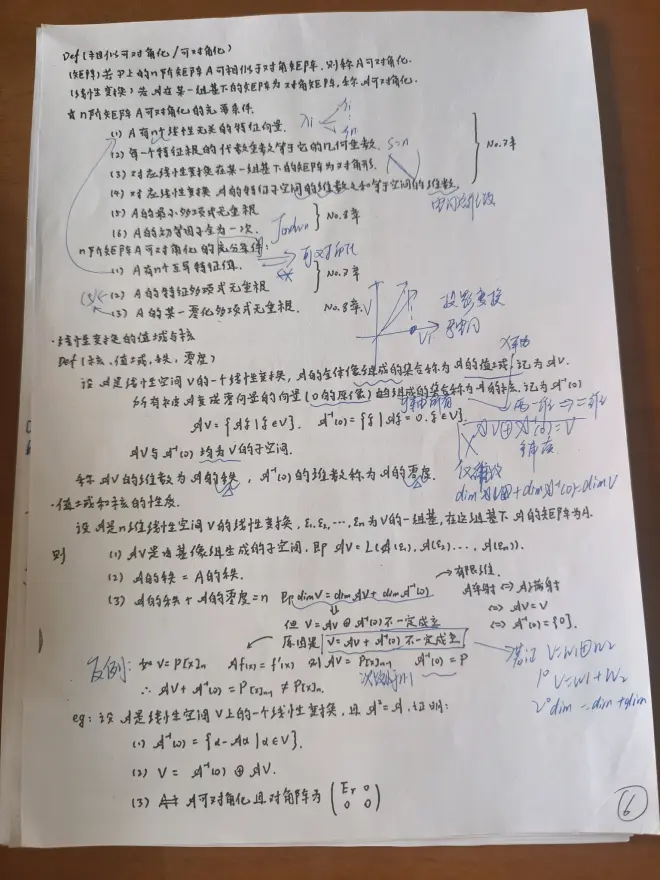 Def(相似可对角化/可对角化)
(矩阵)若P上的n阶矩阵A可相似于对角矩阵,则称A可对角化.
(线性变换)若𝒜在某一组基下的矩阵为对角矩阵,称𝒜可对角化.
☆ n阶矩阵A可对角化的充要条件.
(1) A有n个线性无关的特征向量.
(2) 每一个特征根的代数重数等于它的几何重数. s=n
(3) 对应线性变换在某一组基下的矩阵为对角形.
(4) 对应线性变换𝒜的特征子空间的维数之和等于空间的维数.
No.7章
(5) A的最小多项式无重根
(6) A的初等因子全为一次.
No.8章
Jordan
n阶矩阵A可对角化的充分条件:
可对角化
(1) A有n个互异特征值.
(2) A的特征多项式无重根
No.7章
(3) A的某一零化多项式无重根.
No.8章.
投影变换
·线性变换的值域与核
Def(核、值域,秩,零度)
设𝒜是线性空间V的一个线性变换,𝒜的全体像组成的集合称为𝒜的值域,记为𝒜V.
所有被𝒜变成零向量的向量(0的原像)的组成的集合称为𝒜的核,记为𝒜⁻¹(0)
𝒜V={𝒜ξ|ξ∈V}. 𝒜⁻¹(0)={ξ|𝒜ξ=0,ξ∈V}.
𝒜V⊕𝒜⁻¹(0)=V
𝒜V与𝒜⁻¹(0)均为V的子空间.
称𝒜V的维数为𝒜的秩, 𝒜⁻¹(0)的维数称为𝒜的零度.
dim𝒜V+dim𝒜⁻¹(0)=dimV
·值域和核的性质.
设𝒜是n维线性空间V的线性变换,ε₁,ε₂,…,εn为V的一组基,在这组基下𝒜的矩阵为A.
则 (1) 𝒜V是由基像组生成的子空间,即𝒜V=L(𝒜(ε₁),𝒜(ε₂),…,𝒜(εn)).
(2) 𝒜的秩=A的秩.
→有限维.
(3) 𝒜的秩+𝒜的零度=n 即dimV=dim𝒜V+dim𝒜⁻¹(0)
𝒜单射⇔𝒜满射
⇔𝒜V=V
⇔𝒜⁻¹(0)={0}.
但V=𝒜V⊕𝒜⁻¹(0)不一定成立
原因是 V=𝒜V+𝒜⁻¹(0)不一定成立
反例:如V=P[x]n 𝒜f(x)=f'(x) 则𝒜V=P[x]n-1 𝒜⁻¹(0)=P
∴𝒜V+𝒜⁻¹(0)=P[x]n-1≠P[x]n.
若证 V=W1⊕W2
1° V=W1+W2
2° dim=dim+dim
eg:设𝒜是线性空间V上的一个线性变换,且𝒜²=𝒜,证明:
(1) 𝒜⁻¹(0)={α-𝒜α|α∈V}.
(2) V=𝒜⁻¹(0)⊕𝒜V.
(3) 𝒜可对角化且对角阵为(Er 0
0 0)
6